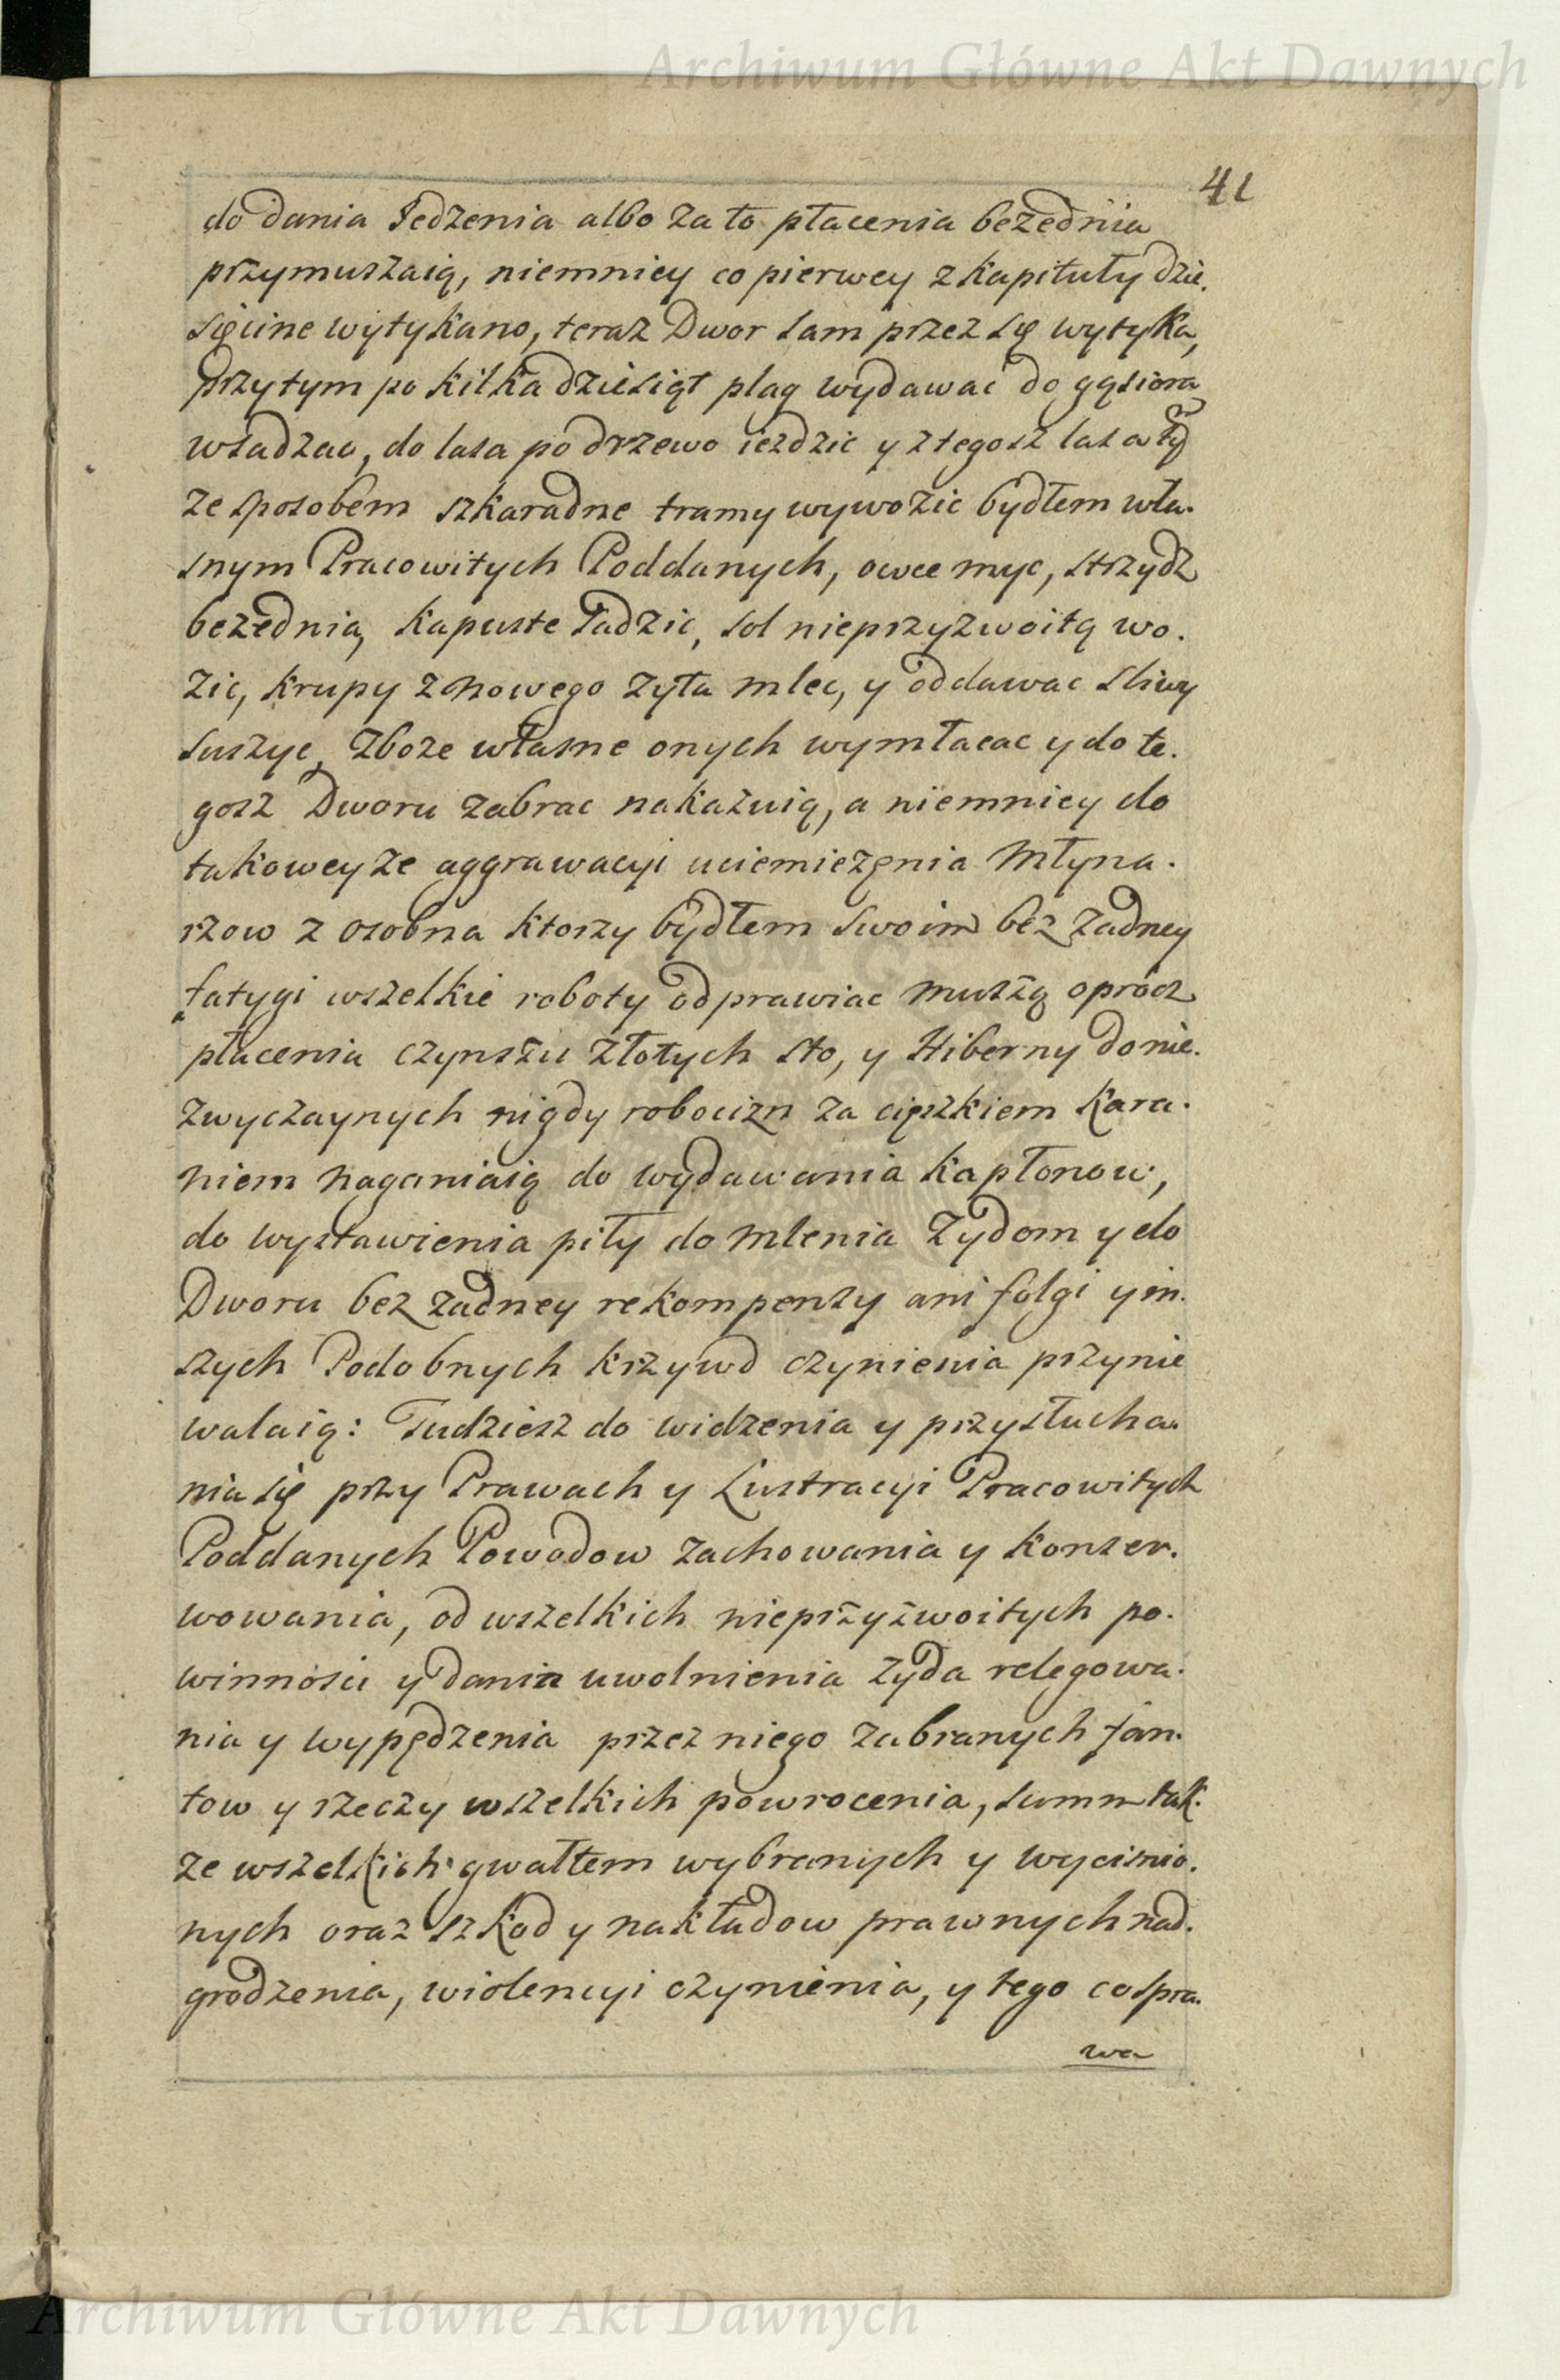 Archiwum Główne Akt Dawnych
41
do dania Jedzenia albo za to płacenia bezednia
przymuszaią, niemniey co pierwey z Kapituły dzie.
sięcine wytykano, teraz Dwor sam przez się wytyka,
przytym po kilkadziesiąt plag wydawac do gąsiora
wsadzac, do lasa po drzewo iezdzic y z tegosz lasa tÿ
ze sposobem szkaradne tramy wywozic bydłem wła.
snym Pracowitych Poddanych, owce myc, strzydz
bezednią, Kapuste Sadzic, sol nieprzyzwoitą wo.
zic, krupy z nowego zyta mlec, y oddawac sliwy
suszyc, Zboze własne onych wymłacac y do te.
gosz Dworu zabrac nakazuią, a niemniey do
takoweyze aggrawacyi uciemięzenia Młyna.
rzow z osobna ktorzy bydłem swoim bez zadney
fatygi wszelkie roboty odprawiac muszą oprócz
płacenia czynszu złotych sto, y Hiberny do nie.
zwyczaynych nigdy robocizn za cięszkiem kara.
niem naganiaią do wydawania kapłonow,
do wystawienia piły do mlenia Zydom y do
Dworu bez zadney rekompensy ani folgi y in.
szych Podobnych krzywd czynienia przynie
walaią: Tudziesz do widzenia y przysłucha.
nia się przy Prawach y Lustracyi Pracowitych
Poddanych Powodow zachowania y konser.
wowania, od wszelkich nieprzyzwoitych po.
winnosci y danin uwolnienia zyda relegowa.
nia y wypędzenia przez niego zabranych fan.
tow y rzeczy wszelkich powrocenia, summ tak.
ze wszelkich gwałtem wybranych y wycisnio.
nych oraz szkod y nakładow prawnych nad.
grodzenia, wiolencyi czynienia, y tego co spra.
wa
Archiwum Główne Akt Dawnych